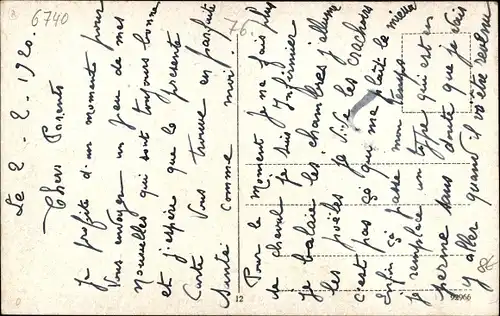 6740
76
Le 2 - 2 - 1920.
Chers Parents
Je profite d'un moment pour
vous envoyer un peu de mes
nouvelles qui sont toujours bonne
et j'espère que la présente
carte vous trouve en parfaite
Santé comme moi.
Pour le moment je ne fais plus
de cheval je suis Infirmier
je balaie les chambres j'allume
les poëles je vide les crachoirs
c'est pas ça qui me plait le mieux
Enfin ça passe mon temps.
je remplace un type qui est en
perme sans doute que je vais
y aller quand il va être revenu
12
92966